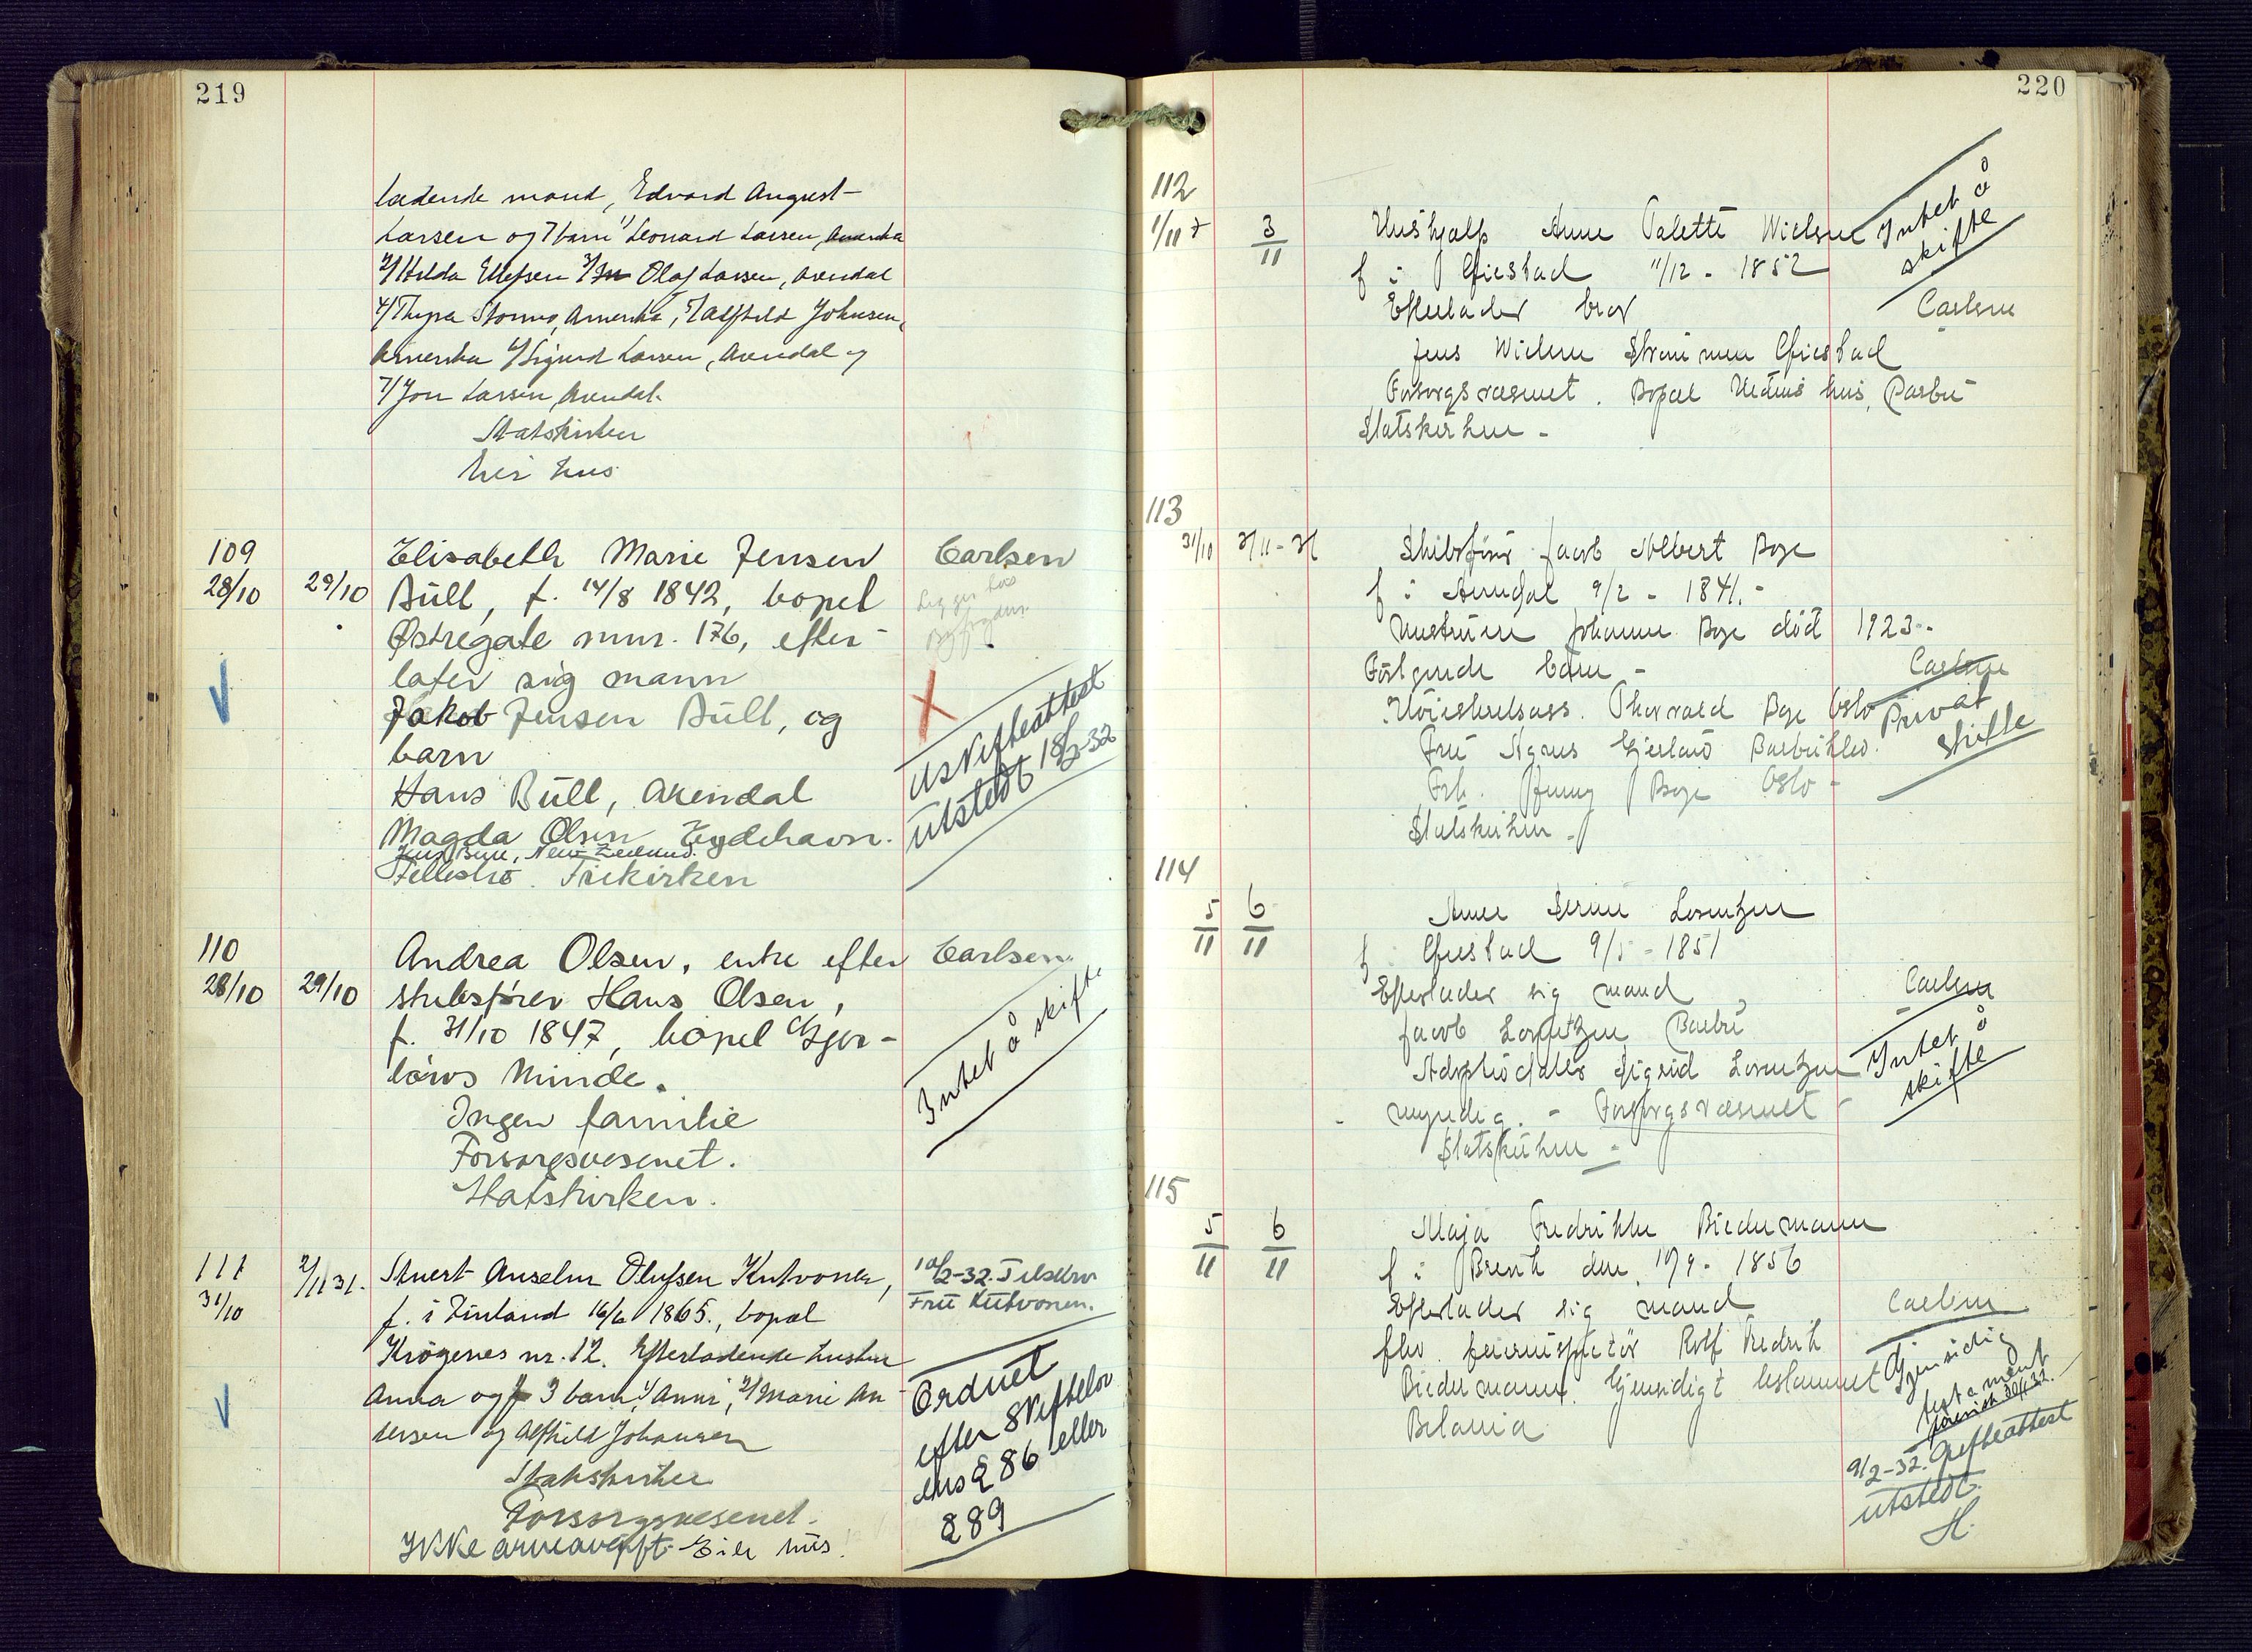 219
ladende mand, Edvard August
Larsen og 7 barn 1/ Leonard Larsen, Amerika
2/ Hilda Ellefsen 3/ Olaf Larsen, Arendal
4/ Thyra Stormo, Amerika, 5/ Alfhild Johnsen,
Amerika 6/ Sigurd Larsen, Arendal og
7/ Jon Larsen, Arendal.
Statskirken
hus
109
28/10 29/10
Elisabeth Marie Jensen
Büll, f. 14/8 1842, bopel
Østregate nmr. 176, efter-
later sig mann
Jakob Jensen Büll, og
barn
Hans Büll, Arendal
Magda Olsen Eydehavn.
Jens Büll, New Zeeland.
Fellesbo. Frikirken
Carlsen
uskifteattest
utstedt 18/2-32
110
28/10 29/10
Andrea Olsen, enke efter
skibsfører Hans Olsen,
f. 31/10 1847, bopel Gjer-
løws Minde.
Ingen familie
Forsorgsvesenet.
Statskirken.
Carlsen
Intet å skifte
111
31/10
2/11 31.
Anselm Olufsen Kutvonen,
f. i Finland 16/6 1865., bopæl
Krøgenes nr. 12. Efterladende hustru
Anna og 3 barn, 1/ Anni, 2/ Marie An-
dersen og Alfhild Johansen
Statskirken
Forsorgsvesenet.
Ikke arveavgift. Eier hus!
10/2-32. Tilskrev
Fru Kutvonen.
Ordnet
efter skiftelov
ens § 86 eller
§ 89
220
112
1/11
3/11
Hushjelp Anne Talette Nielsen
f i Gjestad 11/12 - 1852
Efterlader bror
Jens Nielsen Strømmen Gjestad
Forsorgsvæsenet. Bopæl hus, Barbu
Statskirken -
Intet å
skifte
Carlsen
113
31/10 3/11 - 31
Skibsfører Jacob Albert Boye
f i Arendal 9/2 - 1841. -
Hustruen Johanne Boye død 1923 -
Følgende barn -
Høiesteretsass. Thorvald Boye Oslo
Fru Agnes Barbu
Frk. Jenny Boye Oslo -
Statskirken -
Carlsen
Privat
skifte
114
5/11 6/11
Anne Serine Lorentzen
f Gjestad 9/5 - 1851
Efterlader sig mand,
Jacob Lorentzen Barbu
Adoptivdatter Sigrid Lorentzen
myndig. - Forsorgsvæsenet -
Statskirken -
Carlsen
Intet å
skifte
115
5/11 6/11
Maja Fredrikke Biedermann
f i Brevik den 10/9 - 1856
Efterlader sig mand
fhv. Rolf Fredrik
Biedermann. Gjensidigt testament
Betania
Carlsen
Gjensidig
testament
9/2-32. Skifteattest
utstedt.
H.